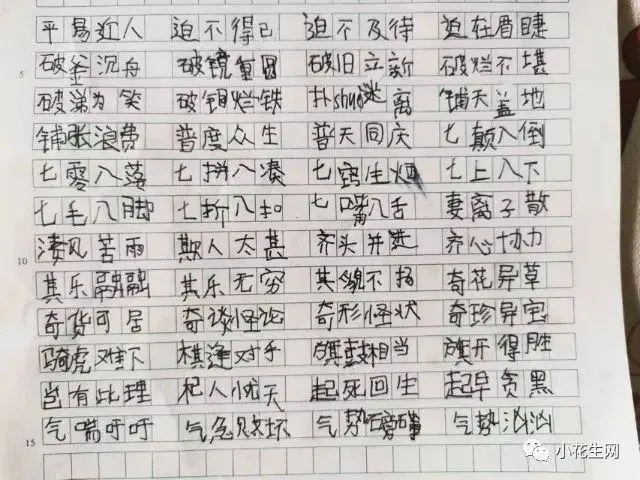 平易近人 迫不得已 迫不及待 迫在眉睫
5 破釜沉舟 破镜重圆 破旧立新 破烂不堪
破涕为笑 破铜烂铁 扑shuo迷离 铺天盖地
铺张浪费 普度众生 普天同庆 七颠八倒
七零八落 七拼八凑 七窍生烟 七上八下
七毛八脚 七折八扣 七嘴八舌 妻离子散
10 凄风苦雨 欺人太甚 齐头并进 齐心协力
其乐融融 其乐无穷 其貌不扬 奇花异草
奇货可居 奇谈怪论 奇形怪状 奇珍异宝
骑虎难下 棋逢对手 旗鼓相当 旗开得胜
岂有此理 杞人忧天 起死回生 起早贪黑
15 气喘吁吁 气急败坏 气势磅礴 气势汹汹
小花生网